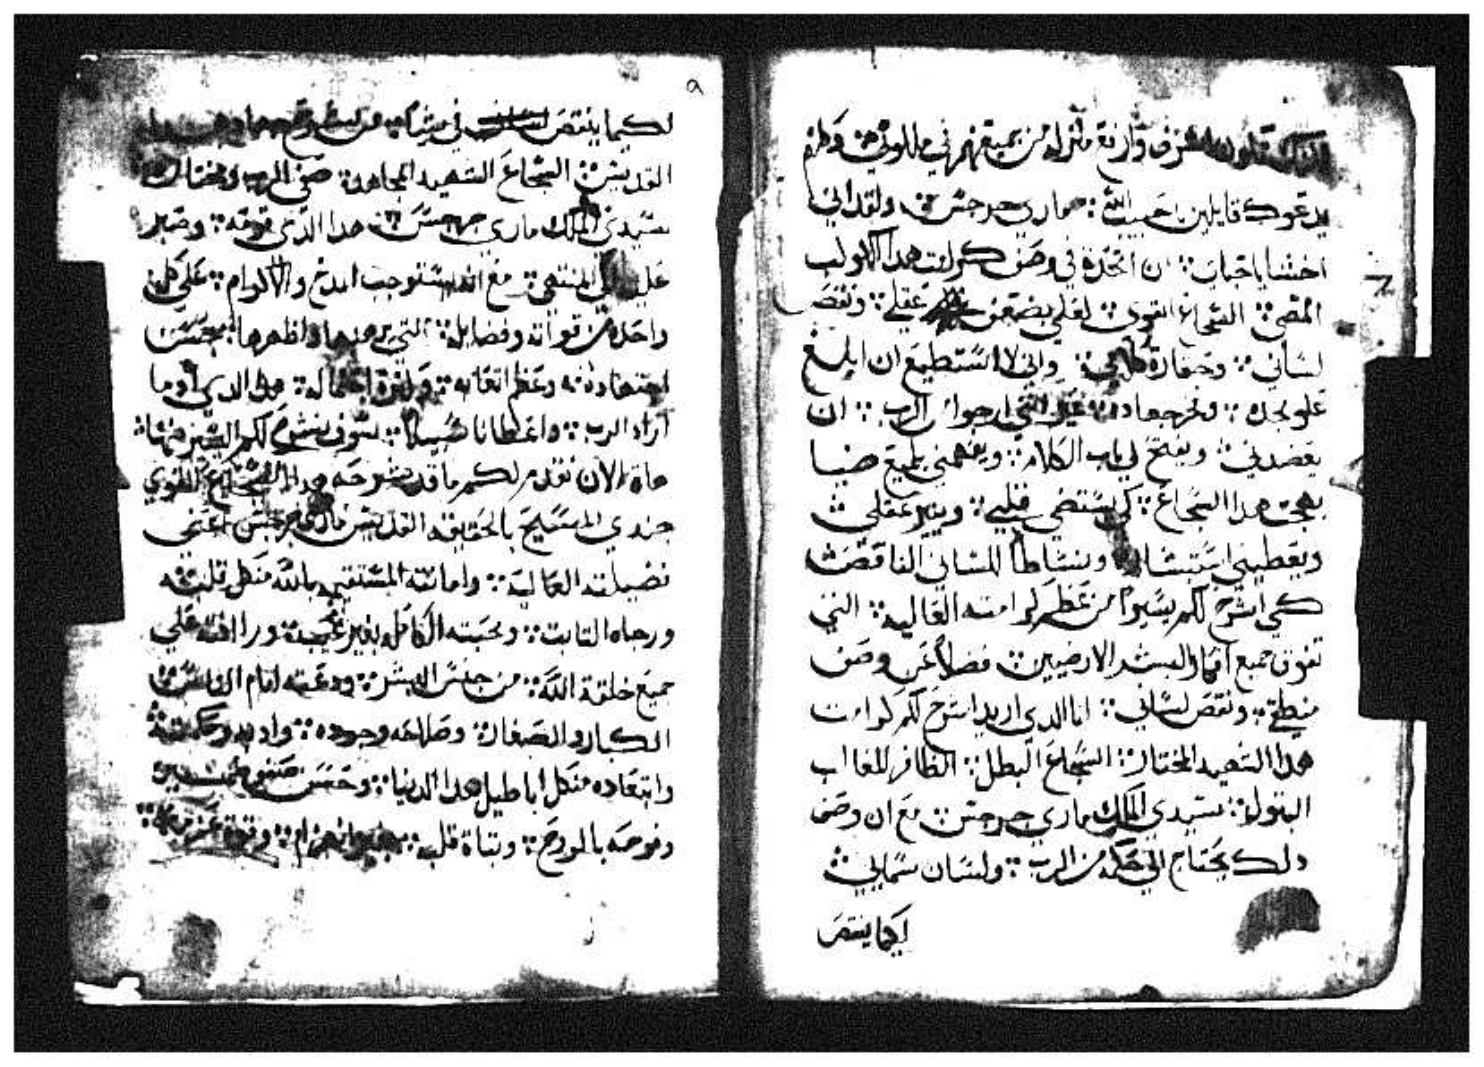 يدعوك قايلين يا حبيب الله ܀ ماري جرجس ܀ ولقد اني
اخشا يا احباي ܀ ان اتجرة في وصف كرامت هدا الكوكب
المضي ܀ الشجاع القوي ܀ لعلمي بضعف عقلي ܀ ونقص
لساني ܀ وحقارة ܀ واني لا استطيع ان ابلغ
علو مجده ܀ وفخر جهاده ܀ غير انني ارجوا من الرب ܀ ان
يعضدني ܀ ويفتح لي باب الكلام ܀ ويفهمني بلميع ضيا
بهجت هدا الشجاع ܀ كي يستضي قلبي ܀ وينير عقلي ܀
ويعطيني ونشاطا للساني الناقص ܀
كي اشرح لكم يسيرا من عظم كرامته العالية ܀ التي
تفوق جميع البشر الارضيين ܀ فضلا عن وصف
منطقي ܀ ونقص لساني ܀ انا الدي اريد اشرح لكم كرامت
هدا الشهيد المختار ܀ الشجاع البطل ܀ الظافر للغالب
البتول ܀ سيدي الملك ماري جرجس ܀ مع ان وصف
دلك يحتاج الي حكمه من الرب ܀ ولسان سمايي ܀
لكيما ينقص
٩
لكيما ينقص في
القديس ܀ الشجاع الشهيد المجاهد ܀ صفي الرب ومختاره
سيدي الملك ماري جرجس ܀ هدا الدي ܀ وصبر
علي المنتهي ܀ مع انه يستوجب المدح والاكرام ܀ علي كل
واحده من قواته وفضايله ܀ التي اظهرها ܀ بحسن
اجتهاده ܀ وعظم اتعابه ܀ احتماله ܀ هدا الدي
اراد الرب ܀ واعطانا سبيلا ܀ سوف نشرح لكم اليسير منها ܀
هاه الان نقدم لكم ما قد نشرحه هدا الشجاع القوي
جندي المسيح بالحقيقه القديس ماري جرجس اعني
فضيلته العاليه ܀ وامانته المستقيمه بالله من كل قلبه ܀
ورجاه التابت ܀ ومحبته الكامله بغير غش ܀ ورافته علي
جميع خلقة الله ܀ من جنس البشر ܀ ودعته امام الناس ܀
الكبار والصغار ܀ وصلاحه وجوده ܀ وادبه وحكمته ܀
وابتعاده من كل اباطيل هدا الدنيا ܀ وحسن
وفرحه بالروح ܀ وتباة قلبه ܀ بغير انهزام ܀ وقوة عزمه ܀